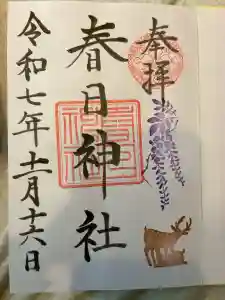 奉拝
春日神社
令和七年十二月十六日